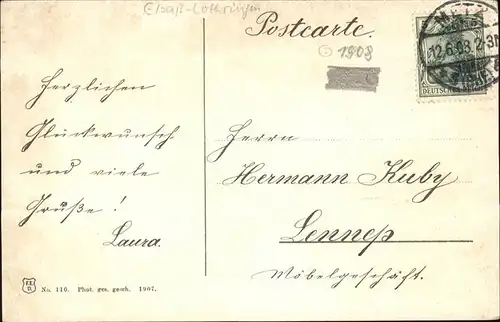 Elsaß-Lothringen
Postcarte.
METZ
12.6.08.2-3N
DEUTSCHES REICH
G 1908
G
Herzlichen
Glückwunsch
und viele
Grüße!
Laura.
Herrn
Hermann Kuby
Lennep
Möbelgeschäft.
No. 110. Phot. ges. gesch. 1907.